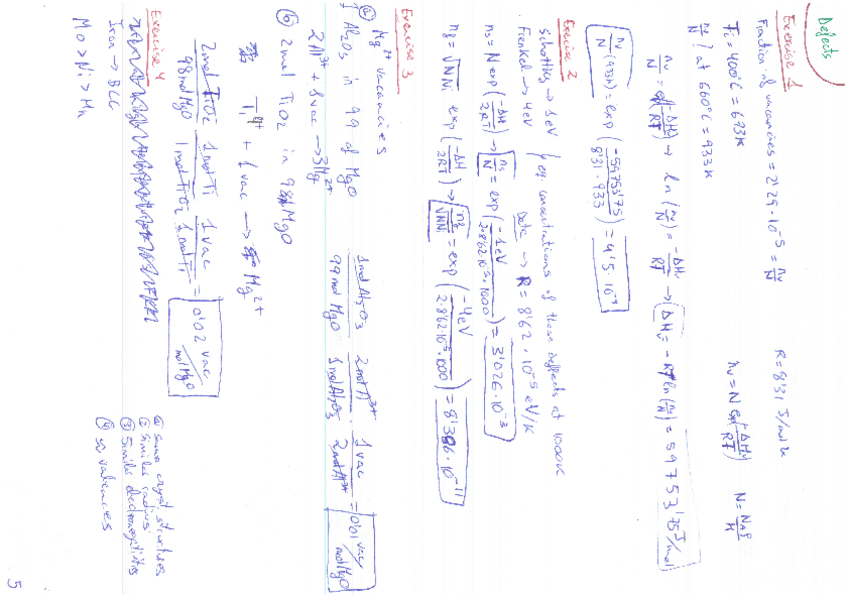 Defects
Exercise 1
Fraction of vacancies = 2'29 · 10^-5 = nv/N
R = 8'31 J/mol K
T1 = 400°C = 673K
nv = N exp(-ΔHv/RT)
nv/N ? at 660°C = 933K
nv/N = exp(-ΔHv/RT) → ln(nv/N) = -ΔHv/RT → ΔHv = -RT ln(nv/N) = 59753'75 J/mol
nv/N (933) = exp(-59753'75/8'31·933) = 4'5·10^-4
Exercise 2
Schottky → 1eV
Frenkel → 4eV
eq concentrations of these defects at 1000K
Data → R = 8'62 · 10^-5 eV/K
ns = N exp(-ΔH/2RT) → ns/N = exp(-1eV/2·8'62·10^-5·1000) = 3'026·10^-3
= exp(-4eV/2·8'62·10^-5·1000) = 8'386·10^-11
Exercise 3
a) Mg^2+ vacancies
1 Al2O3 in 99 of MgO
2Al^3+ + 1 vac → 3Mg^2+
1mol Al2O3/99mol MgO 2mol Al^3+/1mol Al2O3 1vac/2mol Al^3+ = 0'01 vac/mol MgO
b) 2mol TiO2 in 98 MgO
Ti^4+ + 1 vac → 2 Mg^2+
2mol TiO2/98mol MgO 1mol Ti/1mol TiO2 1vac/1mol Ti = 0'02 vac/mol MgO
Exercise 4
Iron → BCC
Mo > Ni > Mn
① Same crystal structures
② Similar radius
③ Similar electronegativities
④ ~ valences
5